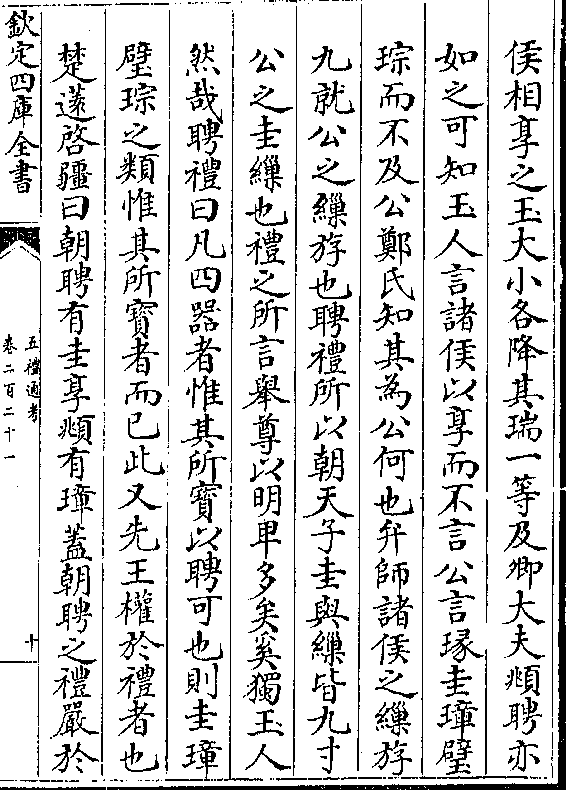 侯相享之玉大小各降其瑞一等及卿大夫頫聘亦
如之可知玉人言諸侯以享而不言公言瑑圭璋璧
琮而不及公鄭氏知其為公何也弁師諸侯之繅斿
九就公之繅斿也聘禮所以朝天子圭與繅皆九寸
公之圭繅也禮之所言舉尊以明卑多矣奚獨玉人
然哉聘禮曰凡四器者惟其所寳以聘可也則圭璋
璧琮之類惟其所寳者而已此又先王權於禮者也
楚薳啓疆曰朝聘有圭享頫有璋蓋朝聘之禮嚴於
欽定四庫全書
五禮通考
卷二百二十一
十